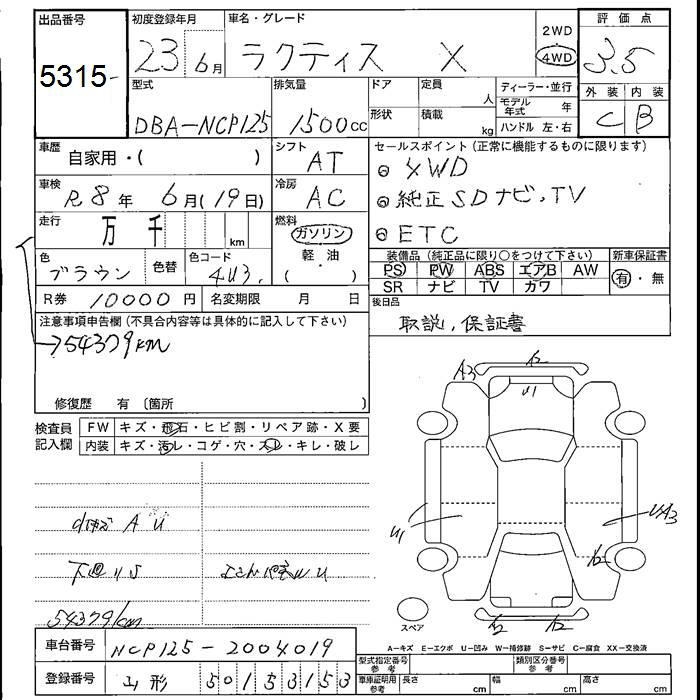 出品番号
5315
初度登録年月
23 6月
車名・グレード
ラクティス X
2WD
4WD
評価点
3.5
外装 内装
C B
型式
DBA-NCP125
排気量
1500cc
ドア
形状
定員
人
積載
kg
ディーラー・並行
モデル年式 年
ハンドル 左・右
車歴
自家用・( )
シフト
AT
車検
R8年 6月(19日)
冷房
AC
走行
万 千 km
燃料
ガソリン
軽・油
( )
色
ブラウン
色替
色コード
4U3
R券 10000円
名変期限 月 日
セールスポイント(正常に機能するものに限ります)
4WD
純正SDナビ、TV
ETC
装備品(純正品に限り○をつけて下さい)
PS PW ABS エアB AW
SR ナビ TV カワ
新車保証書
有・無
後日品
取説、保証書
注意事項申告欄(不具合内容等は具体的に記入して下さい)
→54379km
修復歴 有 〔箇所 〕
検査員記入欄
FW キズ・飛石・ヒビ割・リペア跡・X要
内装 キズ・汚レ・コゲ・穴・スレ・キレ・破レ
A U
下廻りS
54379km
A3
U1
U1
UA3
スペア
A-キズ E-エクボ U-凹み W-補修跡 S-サビ C-腐食 XX-交換済
車台番号 NCP125-2004019
登録番号 山形 501 5 3153
型式指定番号 参考
類別区分番号 参考
車庫証明用 参考
長さ cm
幅 cm
高さ cm